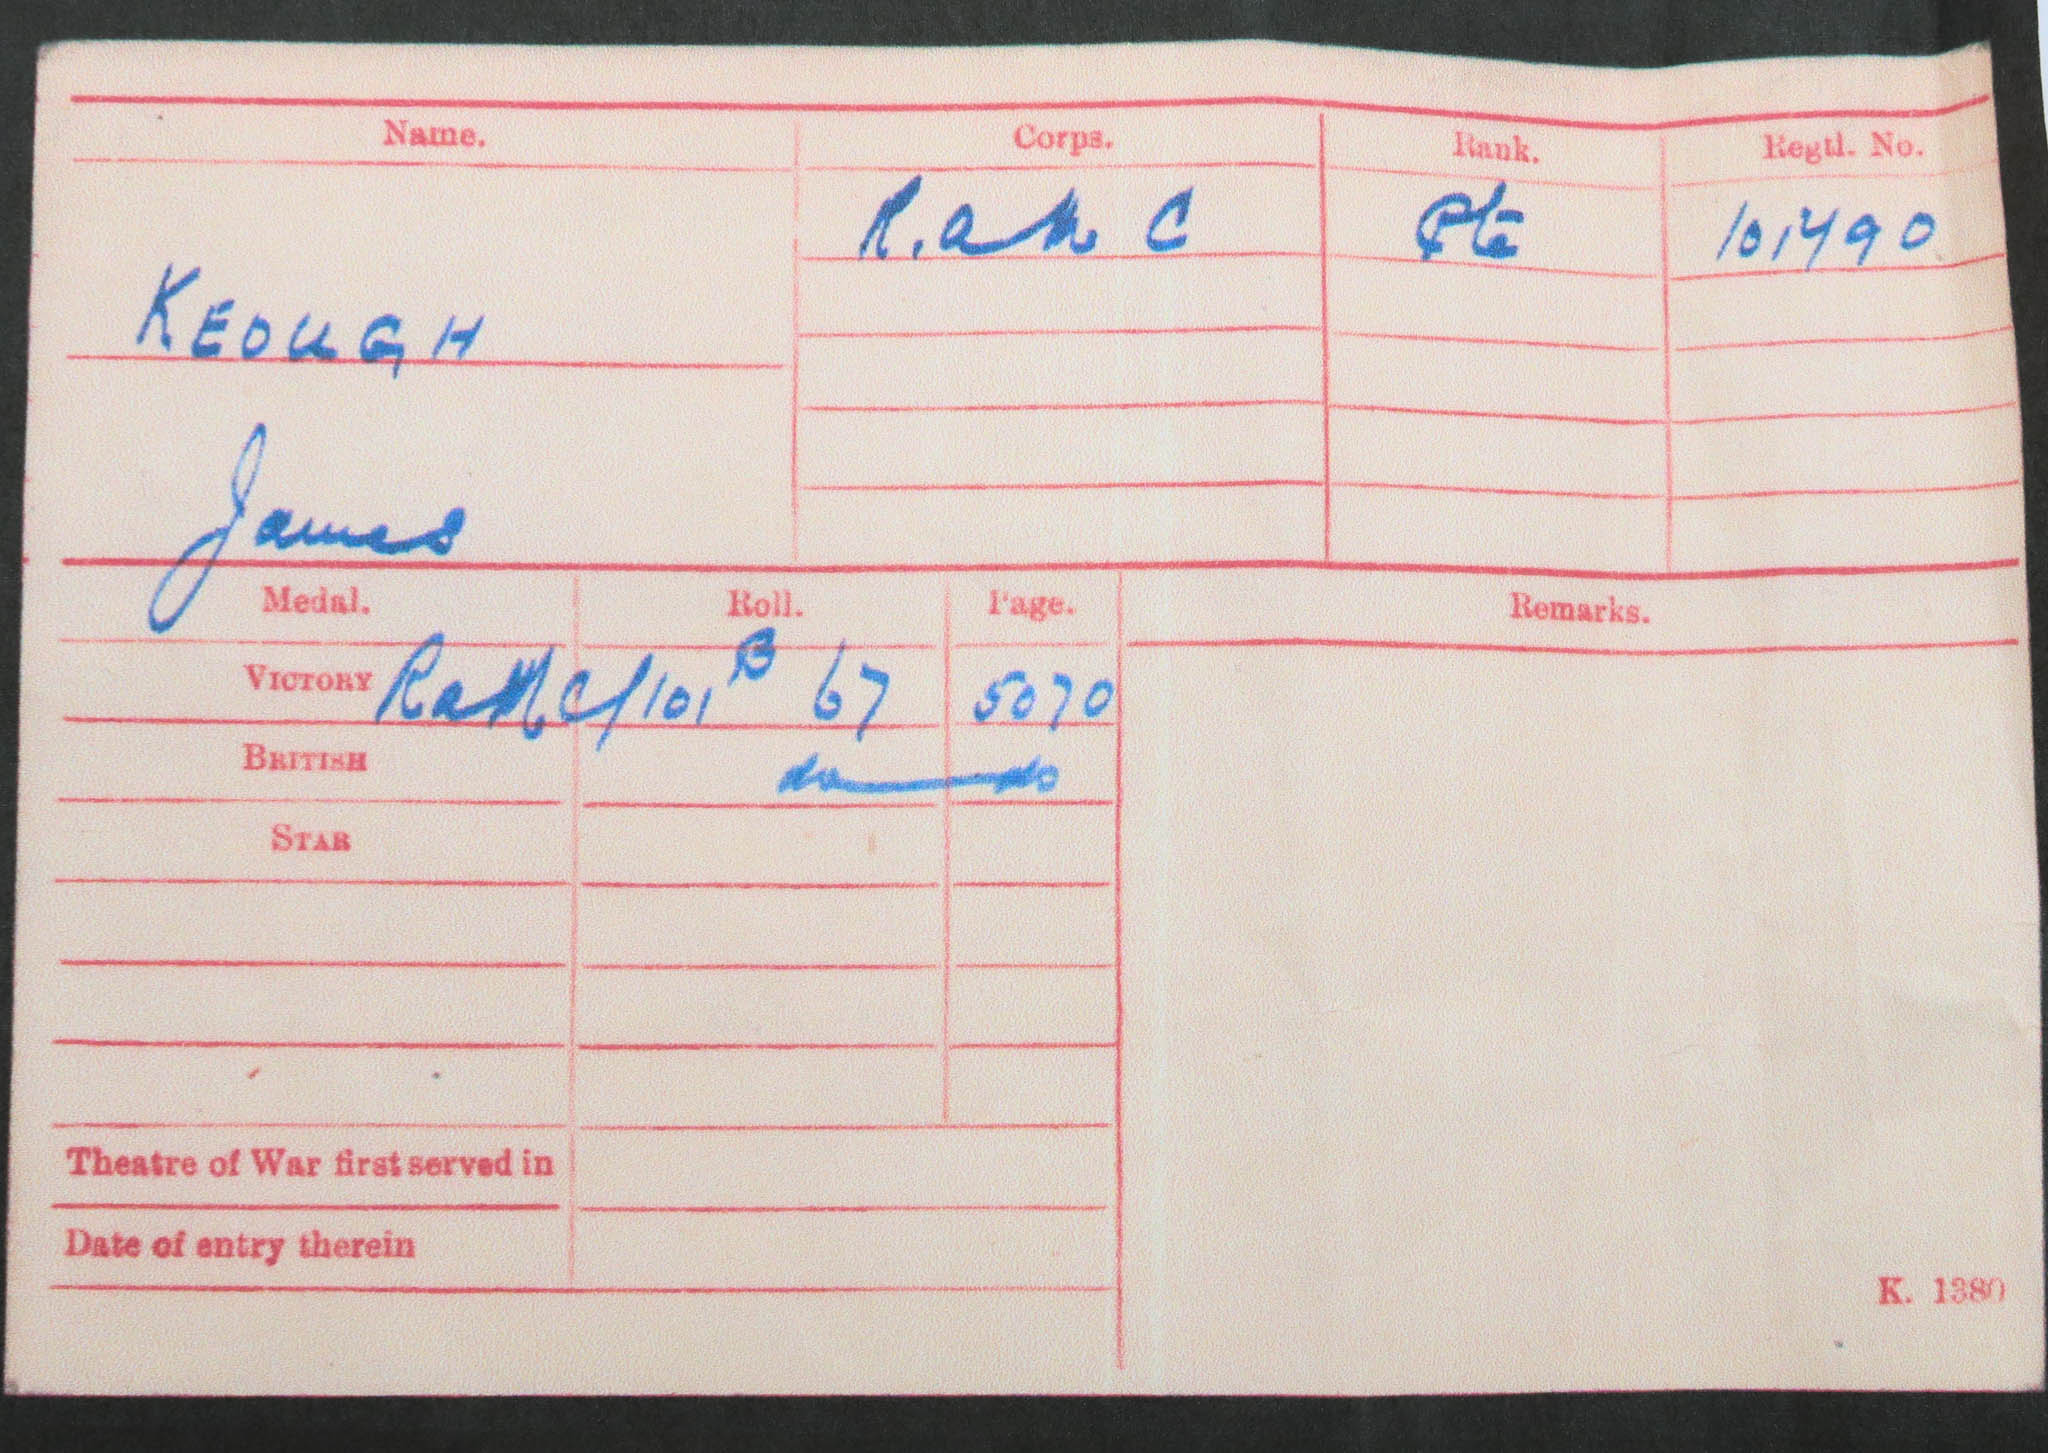 Name. Corps. Rank. Regtl. No.
R.A.M.C Pte 101490
KEOUGH
James
Medal. Roll. Page. Remarks.
VICTORY RAMC/101 B 67 5070
BRITISH do do
STAR
Theatre of War first served in
Date of entry therein
K. 1380